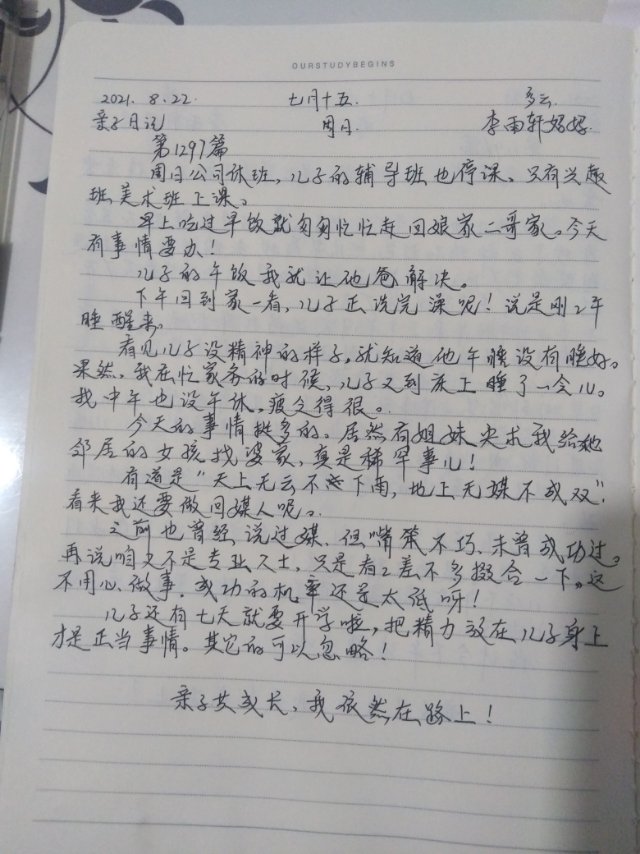 OURSTUDYBEGINS
2021. 8.22. 七月十五. 多云.
亲子日记 周日. 李雨轩妈妈.
第1297篇
周日公司休班, 儿子的辅导班也停课、只有兴趣
班美术班上课。
早上吃过早饭就匆匆忙忙赶回娘家二哥家。今天
有事情要办!
儿子的午饭我就让他爸解决。
下午回到家一看, 儿子正洗完澡呢! 说是刚午
睡醒来。
看见儿子没精神的样子, 就知道他午睡没有睡好。
果然, 我在忙家务的时候, 儿子又到床上睡了一会儿。
我中午也没午休, 疲乏得很。
今天的事情挺多的。居然有姐妹央求我给她
邻居的女孩找婆家, 真是稀罕事儿!
有道是“天上无云不下雨, 地上无媒不成双”!
看来我还要做回媒人呢。
之前也曾经说过媒、但嘴笨不巧、未曾成功过。
再说咱又不是专业人士, 只是看差不多撮合一下。这
不用心做事, 成功的机率还是太低呀!
儿子还有七天就要开学啦, 把精力放在儿子身上
才是正当事情。其它的可以忽略!
亲子共成长, 我依然在路上!